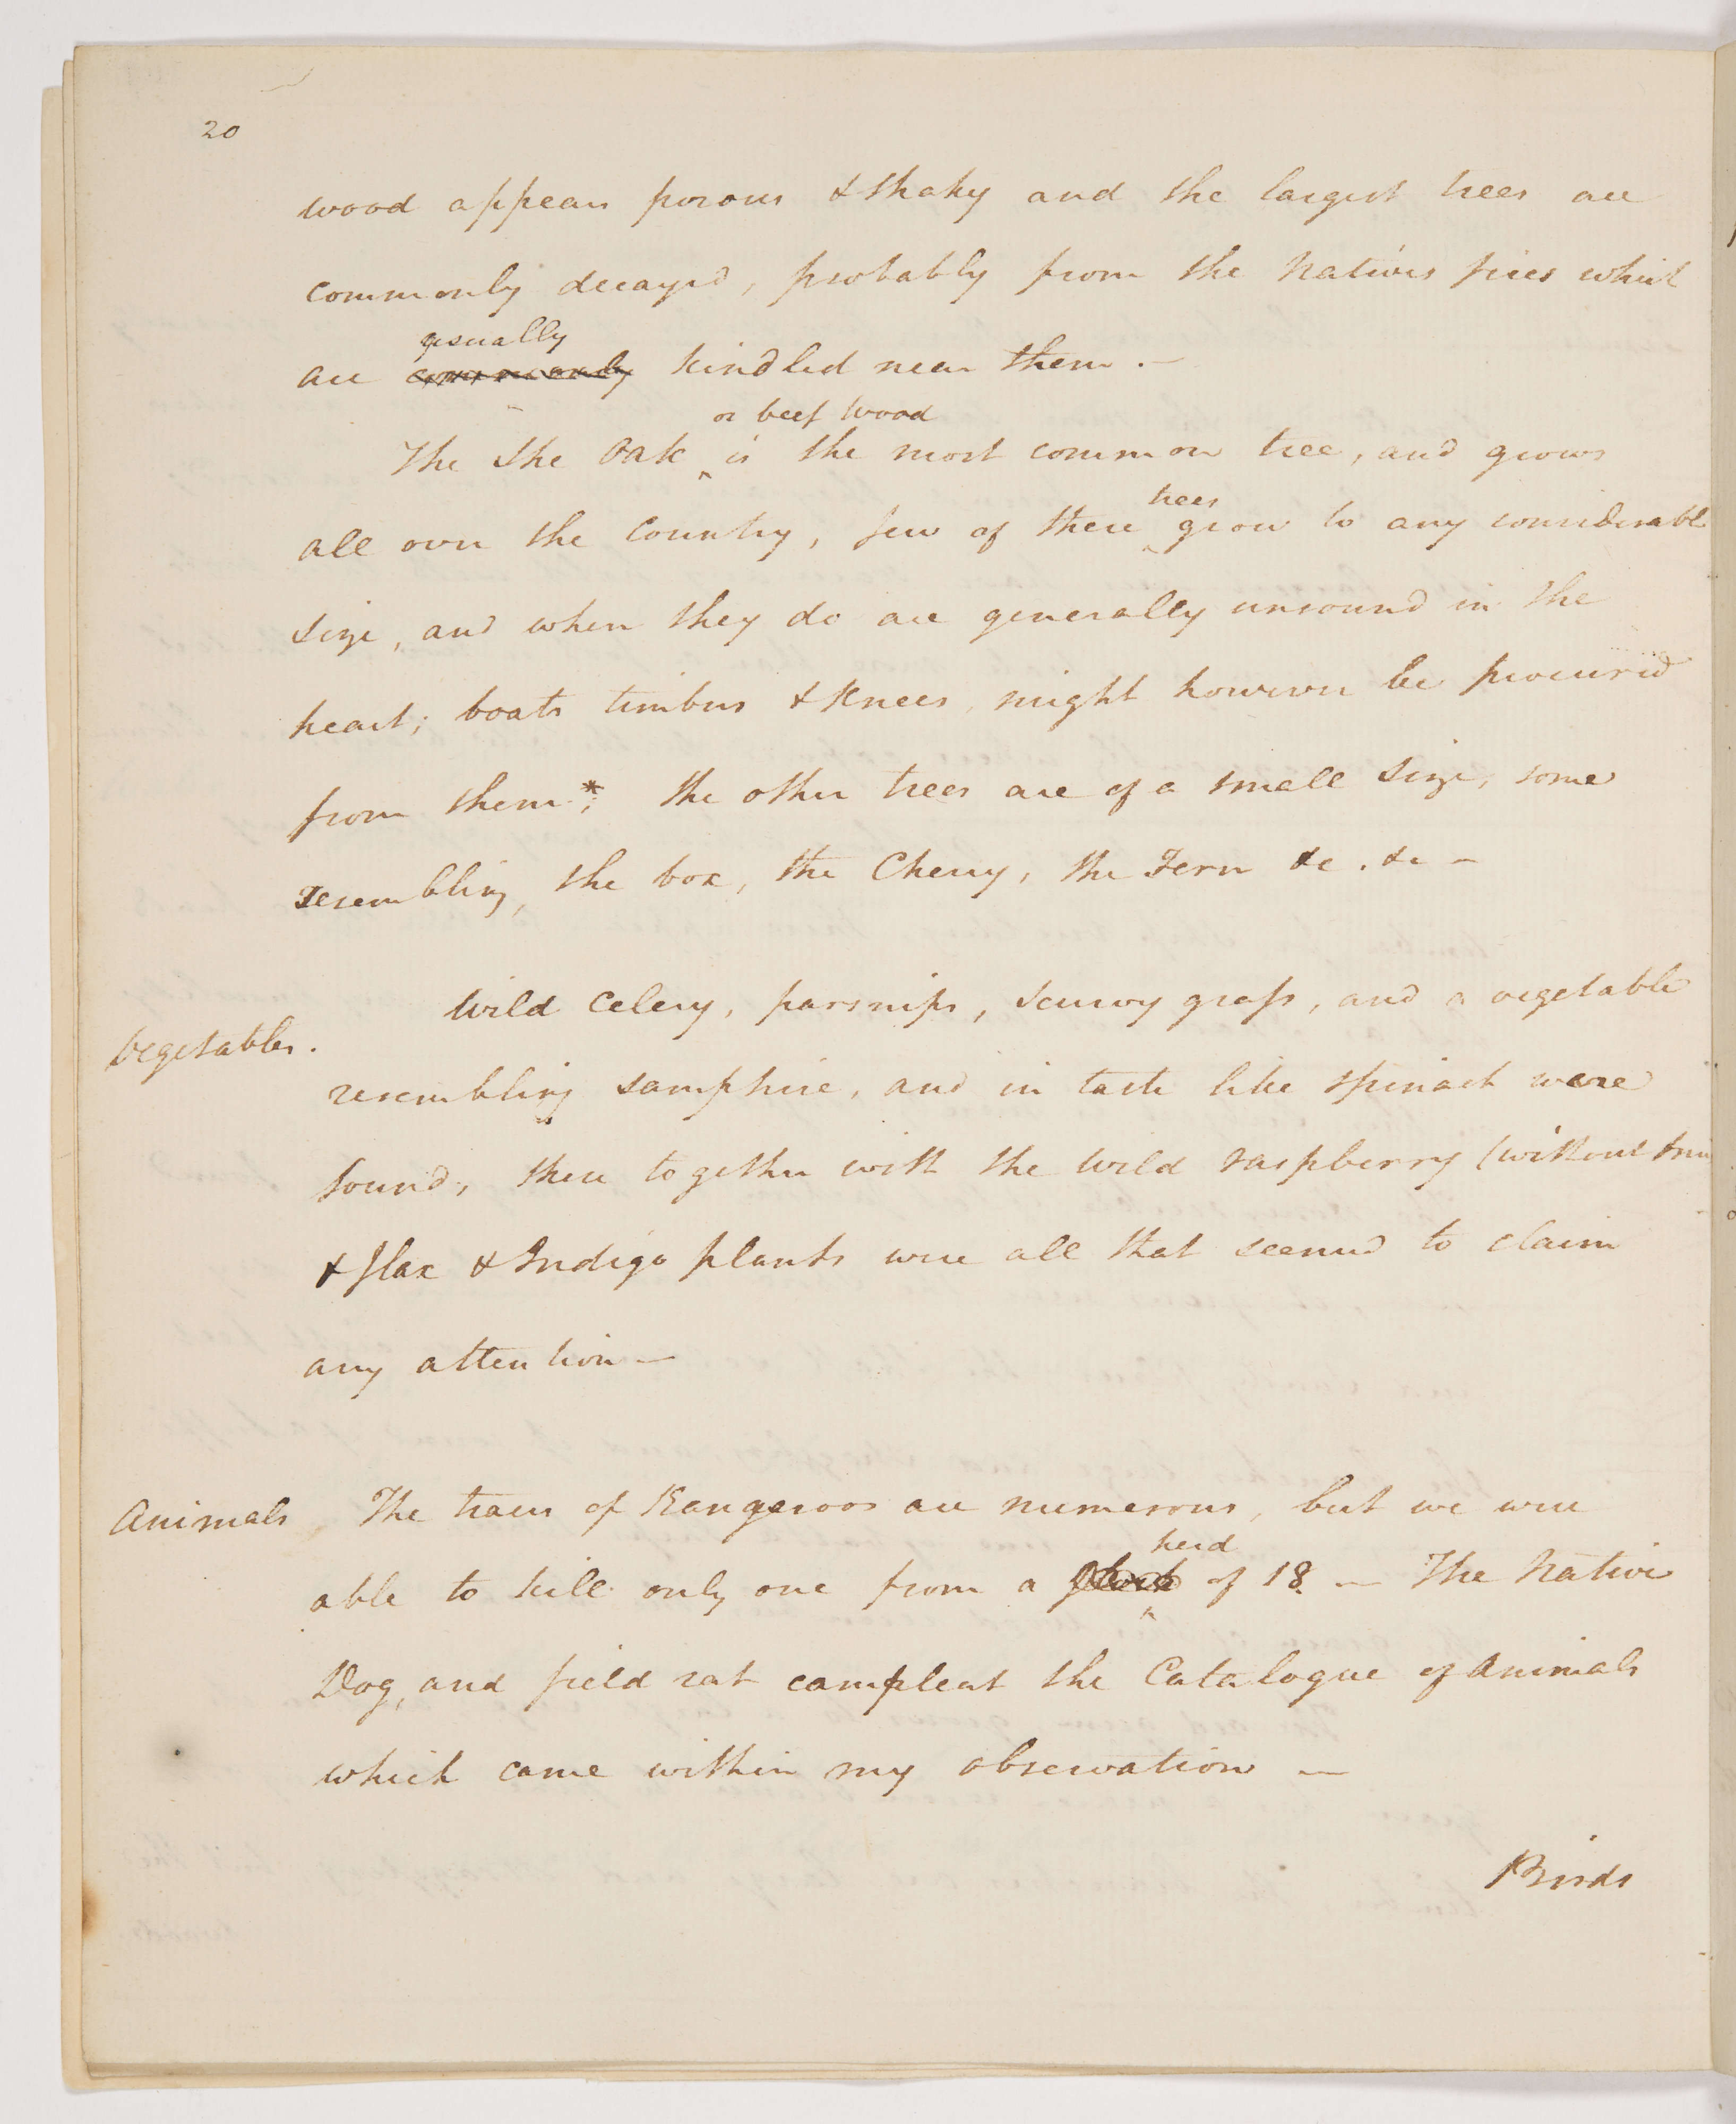 20
wood appears porous & shaky and the largest trees are
commonly decayed, probably from the natives fires which
usually
are commonly kindled near them. —
or beef wood
The She Oak is the most common tree, and grows
trees
all over the Country, few of these grow to any considerable
size, and when they do are generally unsound in the
heart; boats timbers & Knees, might however be procured
from them*; the other trees are of a small size, some
resembling, the box, the Cherry, the Fern &c. &c —
Wild Celery, parsnips, scurvy grass, and a vegetable
Vegetables.
resembling samphire, and in taste like spinach were
found, these together with the wild raspberry (without
& flax & Indigo plants were all that seemed to claim
any attention —
Animals The traces of Kangeroos are numerous, but we were
herd
able to kill only one from a flock of 18. — The Native
Dog, and field rat compleat the Catalogue of Animals
which came within my observation —
Birds